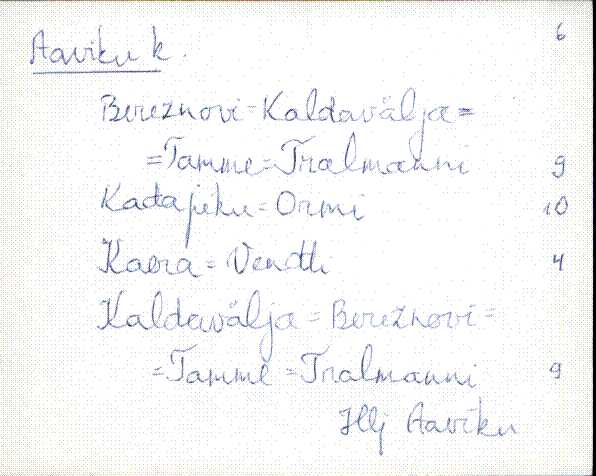 Aaviku k. 6
Bereznovi=Kaldavälja=
=Tamme=Tralmanni 9
Kadajiku=Ormi 10
Kaera=Vendli 4
Kaldavälja=Bereznovi=
=Tamme=Tralmanni 9
Illj Aaviku